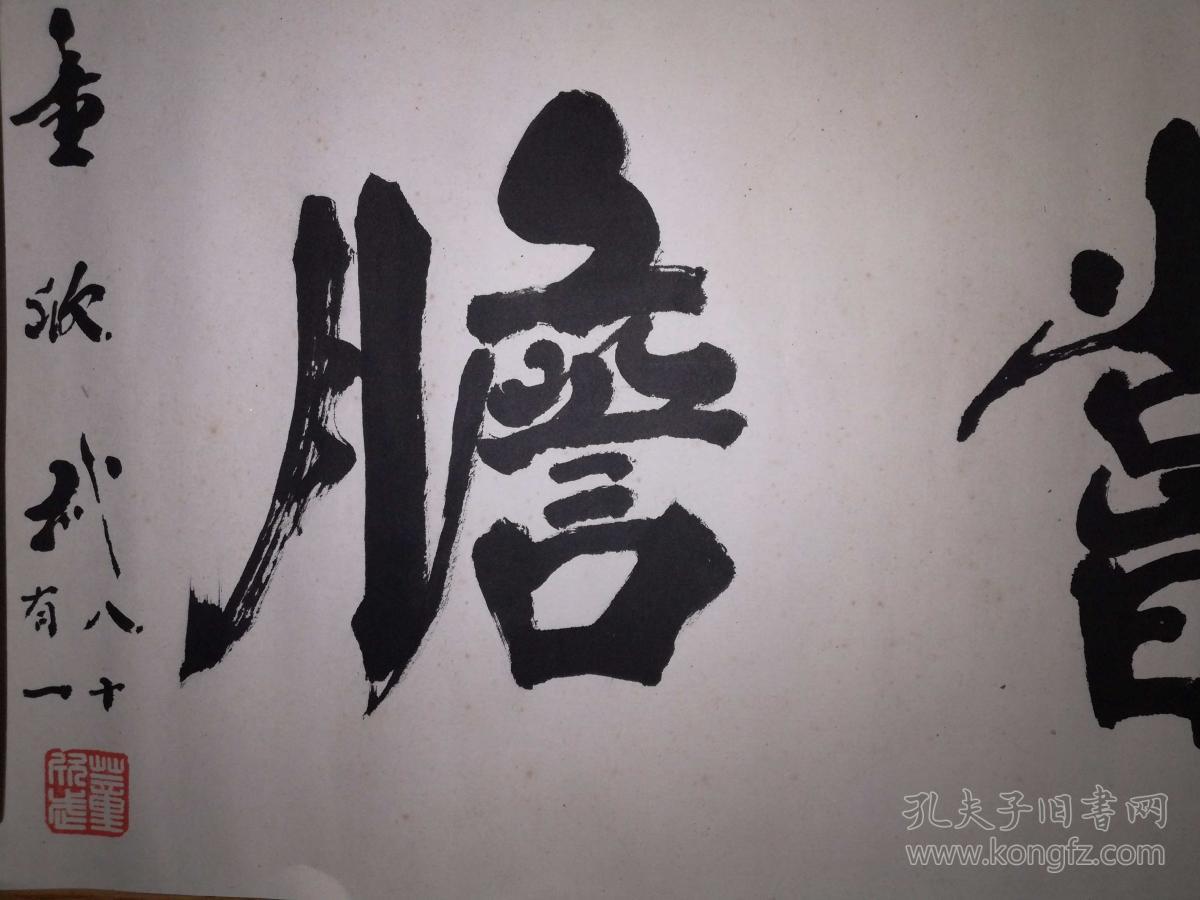 嘗膽
董欣武
八十
有一
董欣武
孔夫子旧书网
www.kongfz.com